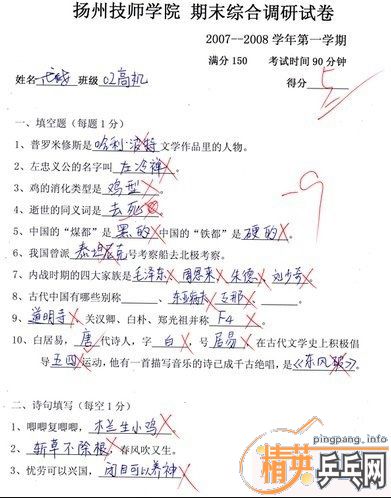 扬州技师学院 期末综合调研试卷
2007--2008 学年第一学期
满分 150 考试时间 90 分钟
姓名 班级 02高机 得分 5
一、填空题（每题 1 分）
-9
1、普罗米修斯是哈利·波特文学作品里的人物。
2、左忠义公的名字叫 左冷禅。
3、鸡的消化类型是 鸡型。
4、逝世的同义词是 去死。
5、中国的“煤都”是 黑的 中国的“铁都”是 硬的。
6、我国曾派 泰坦尼克 号考察船去北极考察。
7、内战时期的四大家族是 毛泽东 周恩来 朱德 刘少奇
8、古代中国有哪些别称 、东亚病夫 支那。
9、道明寺、关汉卿、白朴、郑光祖并称 F4。
10、白居易，唐 代诗人，字 白 号 居易 在古代文学史上积极倡
导 五四 运动，他有一首描写音乐的诗已成千古绝唱，是《东风破》。
二、诗句填写（每空 1 分）
1、唧唧复唧唧，木兰生小鸡
2、斩草不除根，春风吹又生。
3、忧劳可以兴国，闭目可以养神
pingpang.info
精英乒乓网